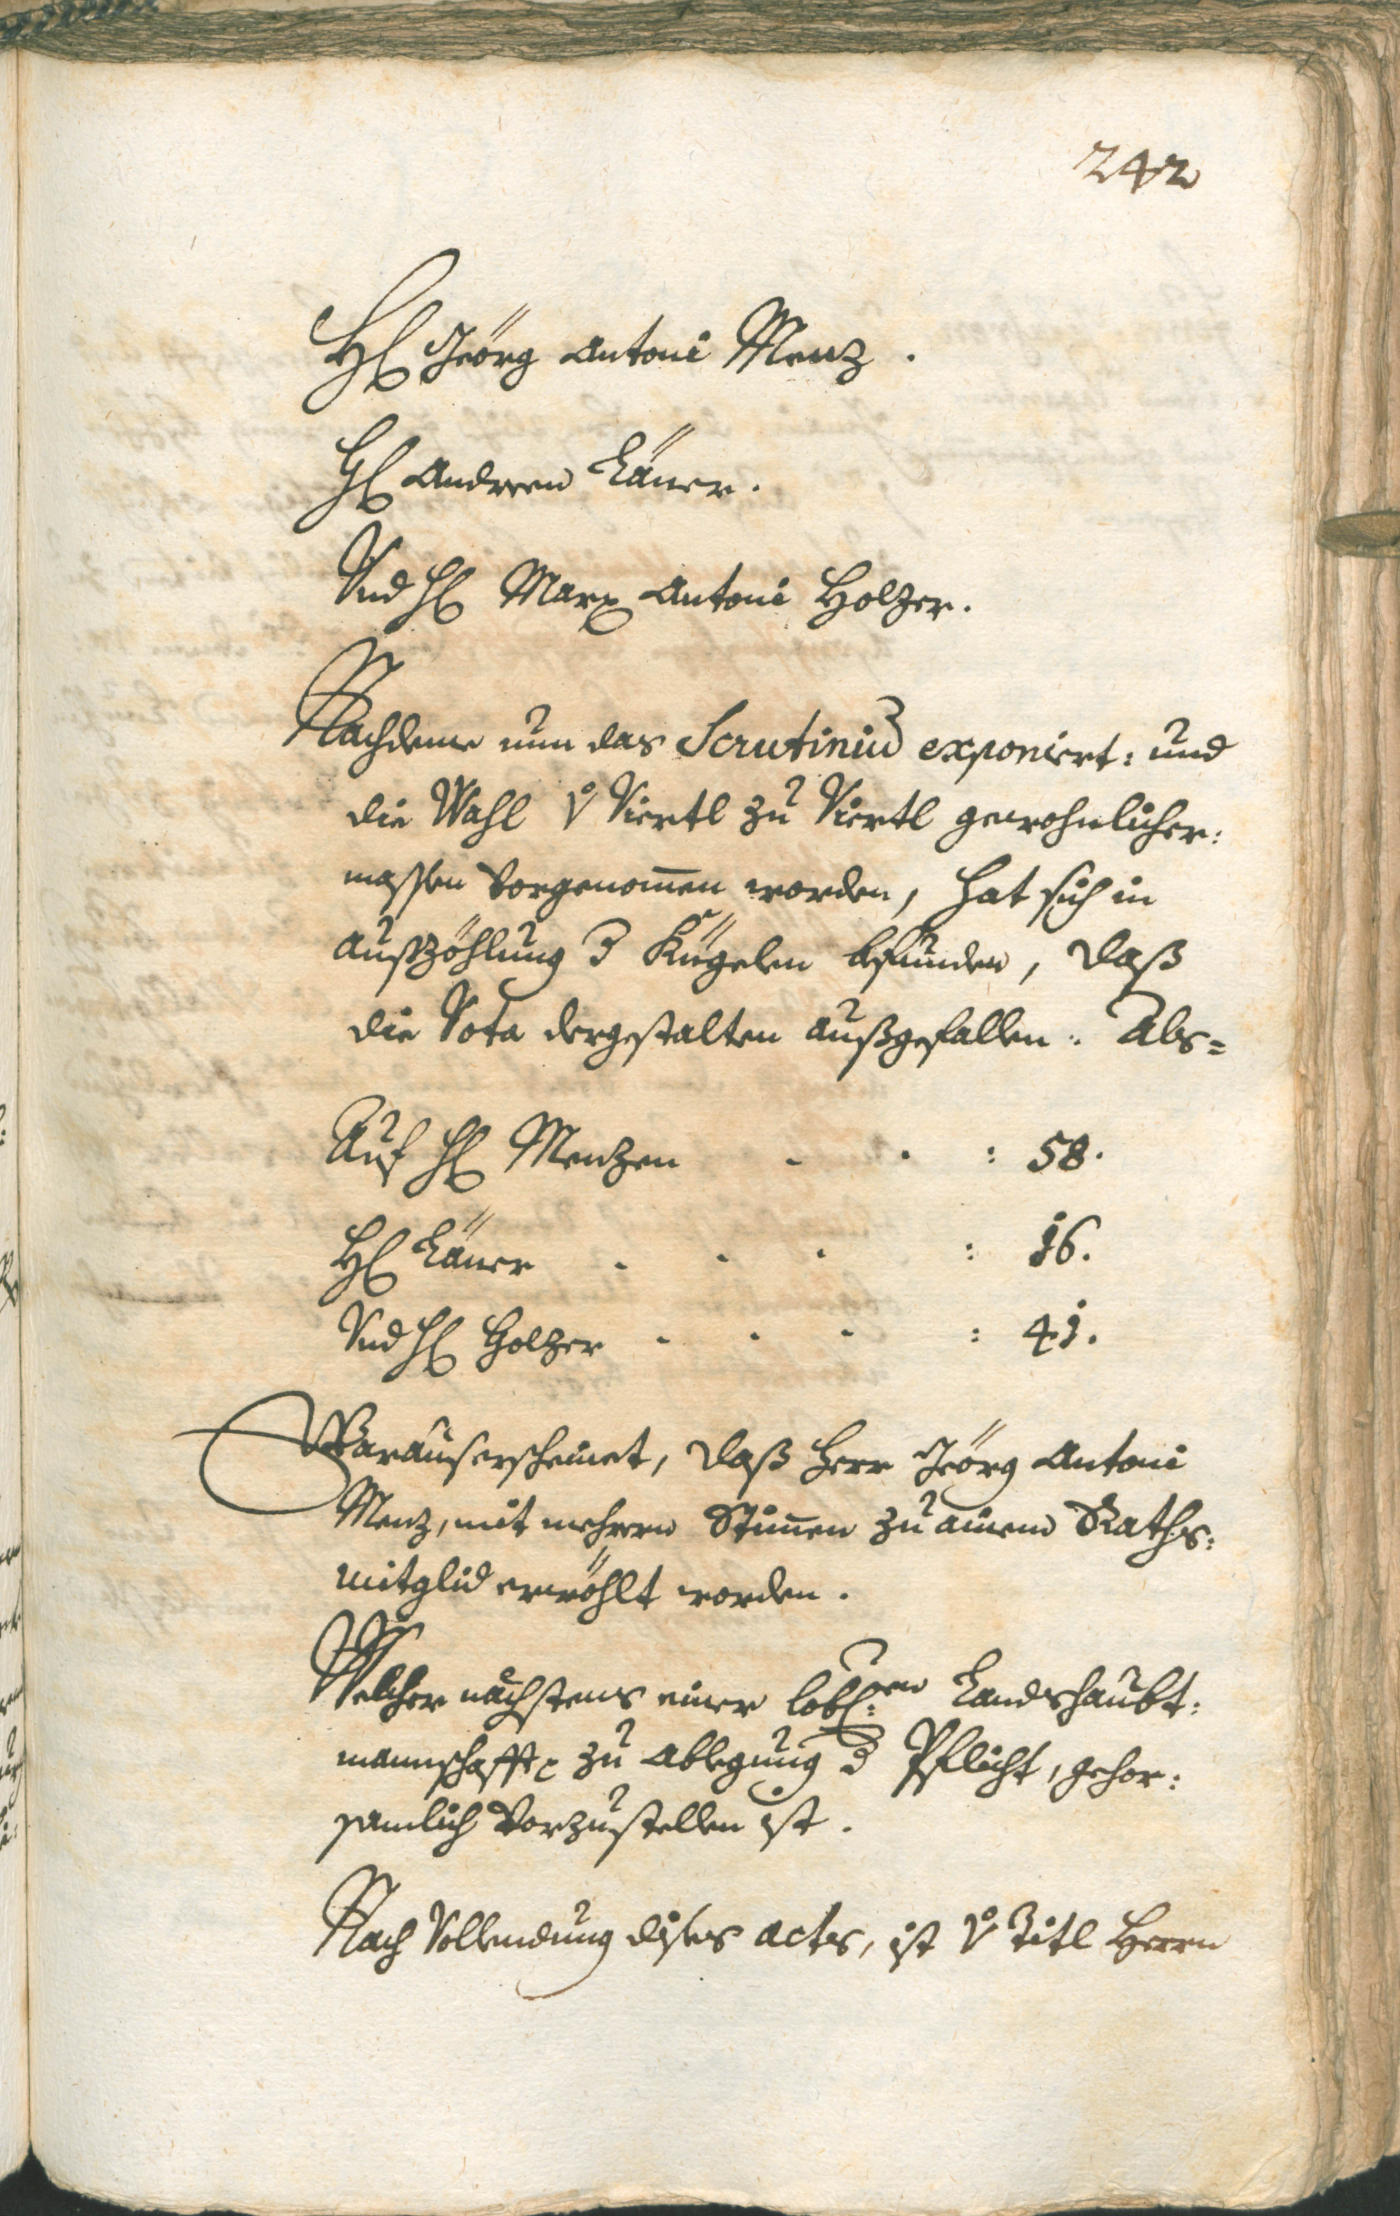 242
H Jeörg Antoni Menz .
H Andreen Läner .
Vnd H Marx Antoni Holzer .
Nachdeme nun das Scrutiniu exponiert : und
die Wahl v̊ Viertl zu Viertl gewohnlicher :
massen vorgenom̄en worden , hat sich in
außzöhlung d Kugelen befunden , daß
die Vota dergestalten außgefallen . Als =
Auf H Menzen - - : 58 .
H Läner - - - : 16 .
Vnd H Holzer - - - : 41 .
Warauserscheinet , daß Herr Jeörg Antoni
Menz , mit mehrern Stim̄en zu ainem Raths :
mitglid erwöhlt worden .
Welcher nächstens einer löbl : en Landshaubt :
mannschafft zu Ablegung d Pflicht , gehor :
samlich vorzustellen ist .
Nach Vollendung dises actus , ist v̊ Titl Herrn